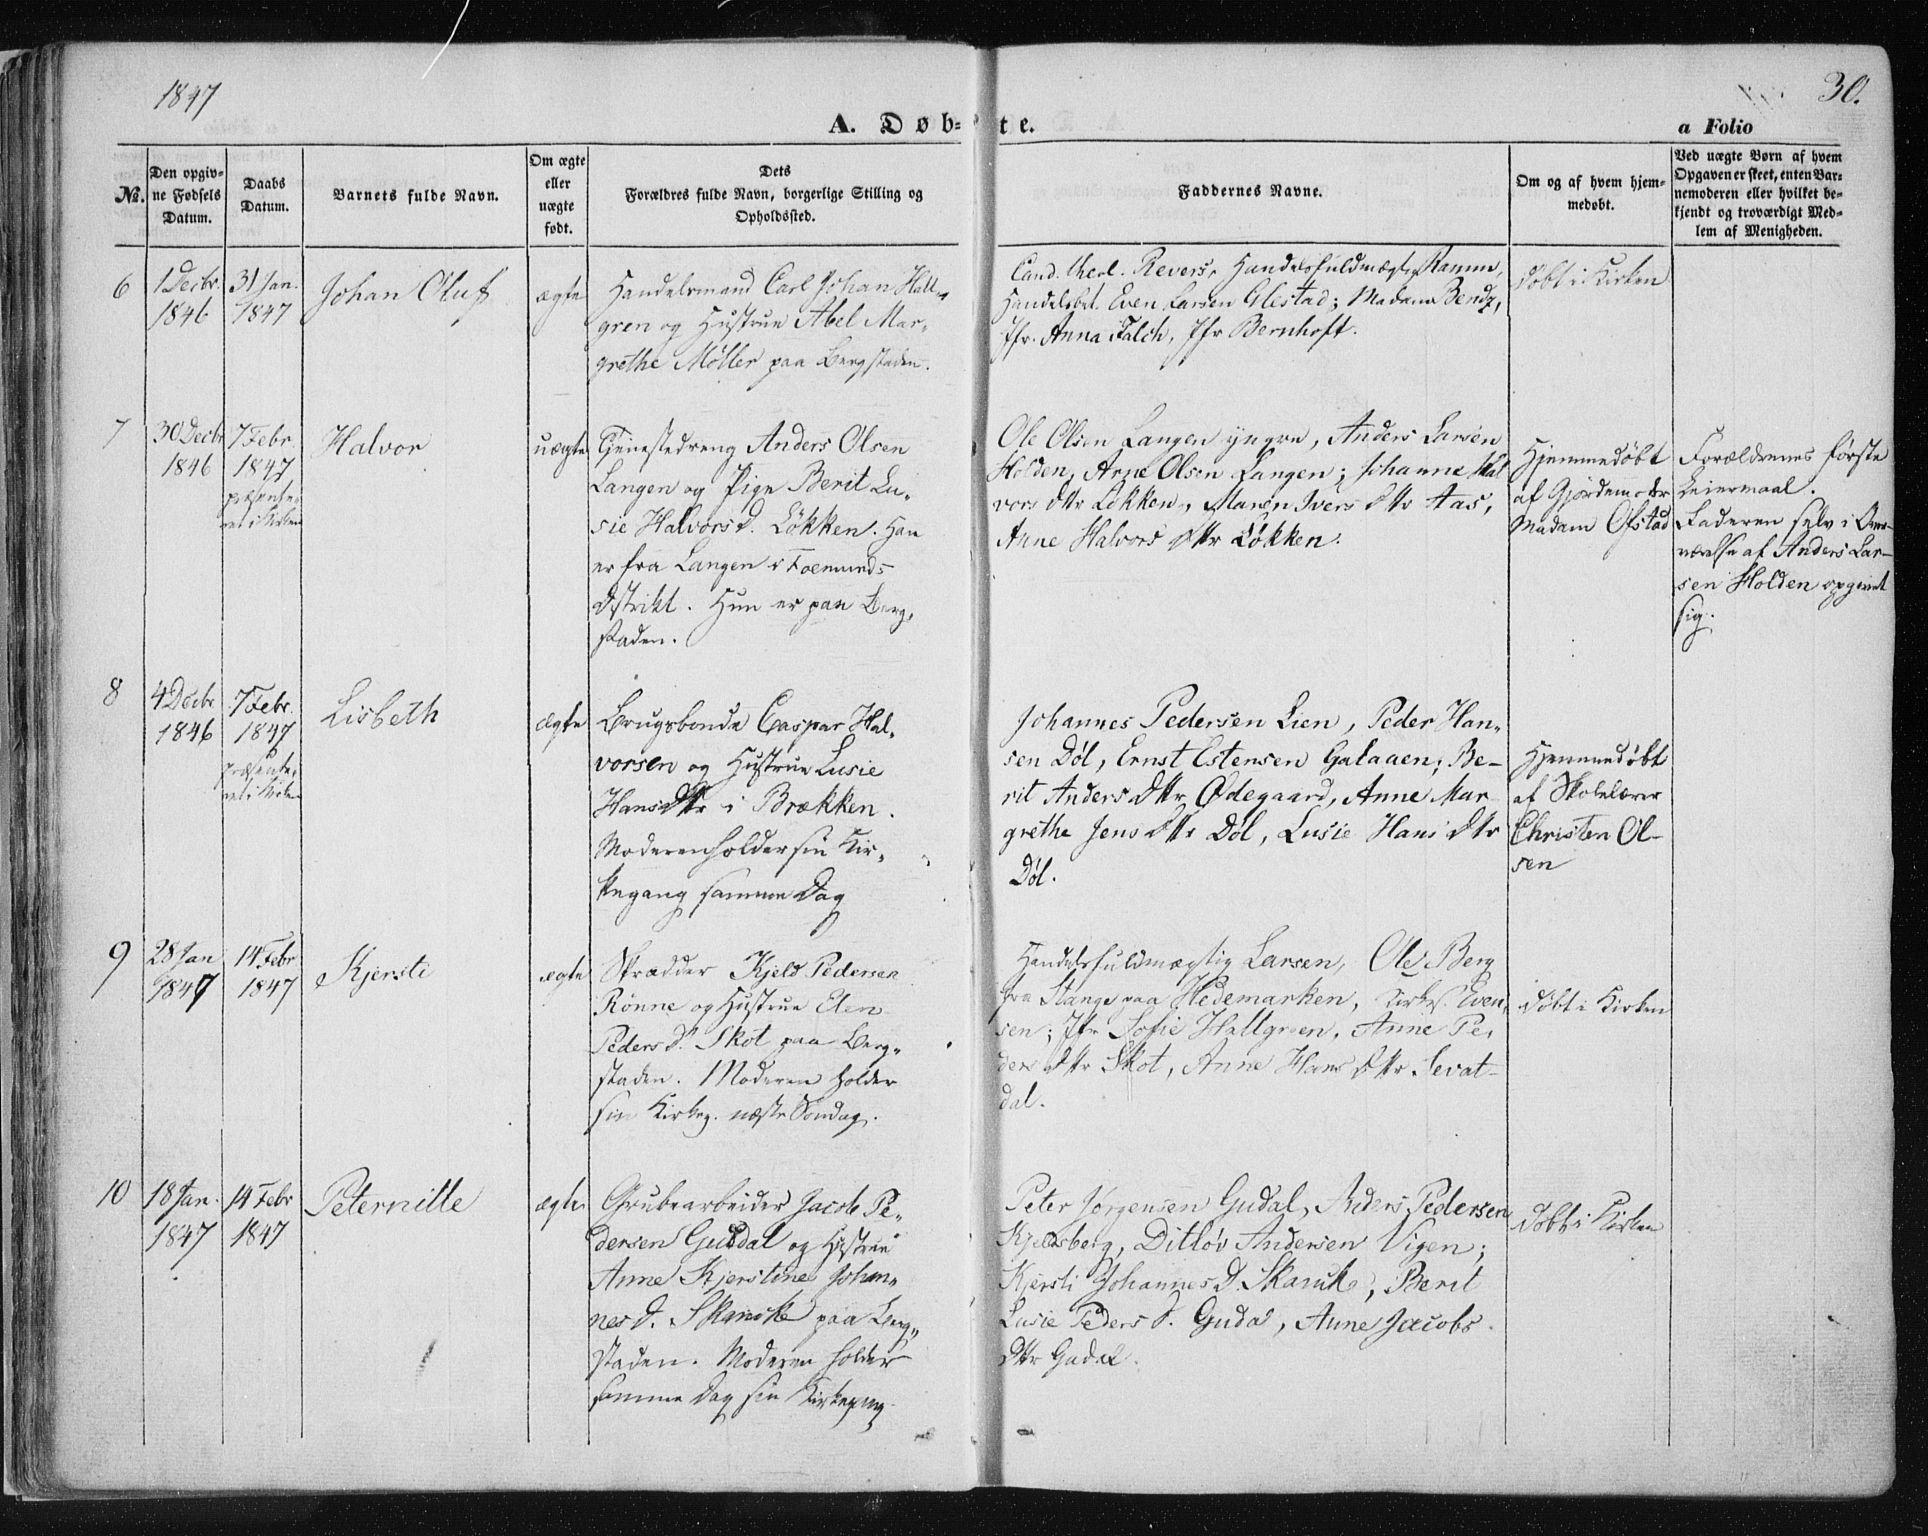 1847
30.
A. Døb-te.
a Folio
No.
Den opgiv-
ne Fødsels
Datum.
Daabs
Datum.
Barnets fulde Navn.
Om ægte
eller
uægte
født.
Dets
Forældres fulde Navn, borgerlige Stilling og
Opholdssted.
Faddernes Navne.
Om og af hvem hjem-
medøbt.
Ved uægte Børn af hvem
Opgaven er skeet, enten Bar-
nemoderen eller hvilket be-
kjendt og troværdigt Med-
lem af Menigheden.
6
1 Decbr.
1846
31 Jan.
1847
Johan Oluf
ægte
Handelsmand Carl Johan Hall-
gren og Hustrue Abel Mar-
grethe Møller paa Bergstaden.
Cand. theol. Revers, Handelsfuldmægt. Ramm,
Handelsbet. Even Larsen Glestad; Madame Bendz,
Jfr. Anna Falch, Jfr Bernhoft.
døbt i Kirken
7
30 Decbr
1846
7 Febr
1847
præsente-
ret i Kirken
Halvor
uægte
Tjenestedreng Anders Olsen
Langen og Pige Berit Lu-
sie Halvorsd. Løkken. Han
er fra Langen i Foemunds
Distrikt. Hun er paa Berg-
staden.
Ole Olsen Langen yngre, Anders Larsen
Holden, Arne Olsen Langen; Johanne Hal
vors Dttr Løkken, Maren Ivers Dttr Aas,
Anne Halvors Dttr Løkken.
Hjemmedøbt
af Gjordemoder
Madam Ofstad
Forældrenes første
Leiermaal.
Faderen selv i Over-
værelse af Anders Lar-
sen Holden opgivet
sig.
8
4 Decbr
1846
7 Febr.
1847
præsente-
ret i Kirken
Lisbeth
ægte
Brugsbonde Caspar Hal-
vorsen og Hustrue Lusie
Hans Dttr i Brækken.
Moderen holder sin Kir-
kegang samme Dag
Johannes Pedersen Lien, Peder Han-
sen Døl, Ernst Estensen Galaaen; Be-
rit Anders Dttr Ødegaard, Anne Mar
grethe Jens Dttr Døl, Lusie Hans Dttr
Døl.
Hjemmedøbt
af Skolelærer
Christen Ol-
sen
9
28 Jan
1847
14 Febr
1847
Kjersti
ægte
Skrædder Kjeld Pedersen
Rønne og Hustrue Elen
Pedersd. Skot paa Berg-
staden. Moderen holder
sin Kirkeg. næste Søndag.
Handelsfuldmægtig Larsen, Ole Berg
fra Stange paa Hedemarken, Kirkes. Even
sen; Jfr Sofie Hallgreen, Anne Pe-
ders Dttr Skot, Anne Hans Dttr Sevat-
dal.
døbt i Kirken
10
18 Jan.
1847
14 Febr
1847
Peternille
ægte
Grubearbeider Jacob Pe-
dersen Guddal og Hustrue
Anne Kjerstine Johan-
nesd. Skancke paa Berg-
staden. Moderen holder
samme Dag sin Kirkegang
Peter Jørgensen Gudal, Anders Pedersen
Kjelsberg, Ditløv Andersen Vigen;
Kjersti Johannes D. Skanck, Berit
Lusie Peders d. Gudal, Anne Jacobs
Dttr Gudal.
døbt i Kirken